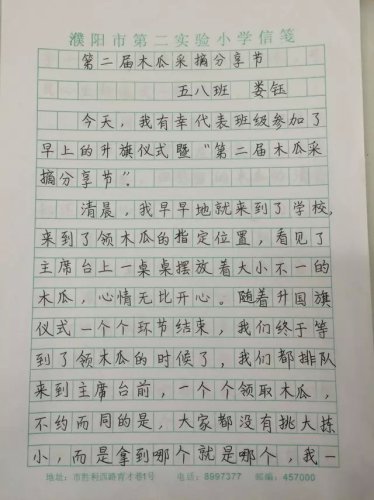 濮阳市第二实验小学信笺
第二届木瓜采摘分享节
五八班 娄钰
今天，我有幸代表班级参加了
早上的升旗仪式暨“第二届木瓜采
摘分享节”。
清晨，我早早地就来到了学校，
来到了领木瓜的指定位置，看见了
主席台上一桌桌摆放着大小不一的
木瓜，心情无比开心。随着升国旗
仪式一个个环节结束，我们终于等
到了领木瓜的时候了，我们都排队
来到主席台前，一个个领取木瓜，
不约而同的是，大家都没有挑大拣
小，而是拿到哪个就是哪个，我一
地址：市胜利西路育才巷1号 电话：8997377 邮编：457000